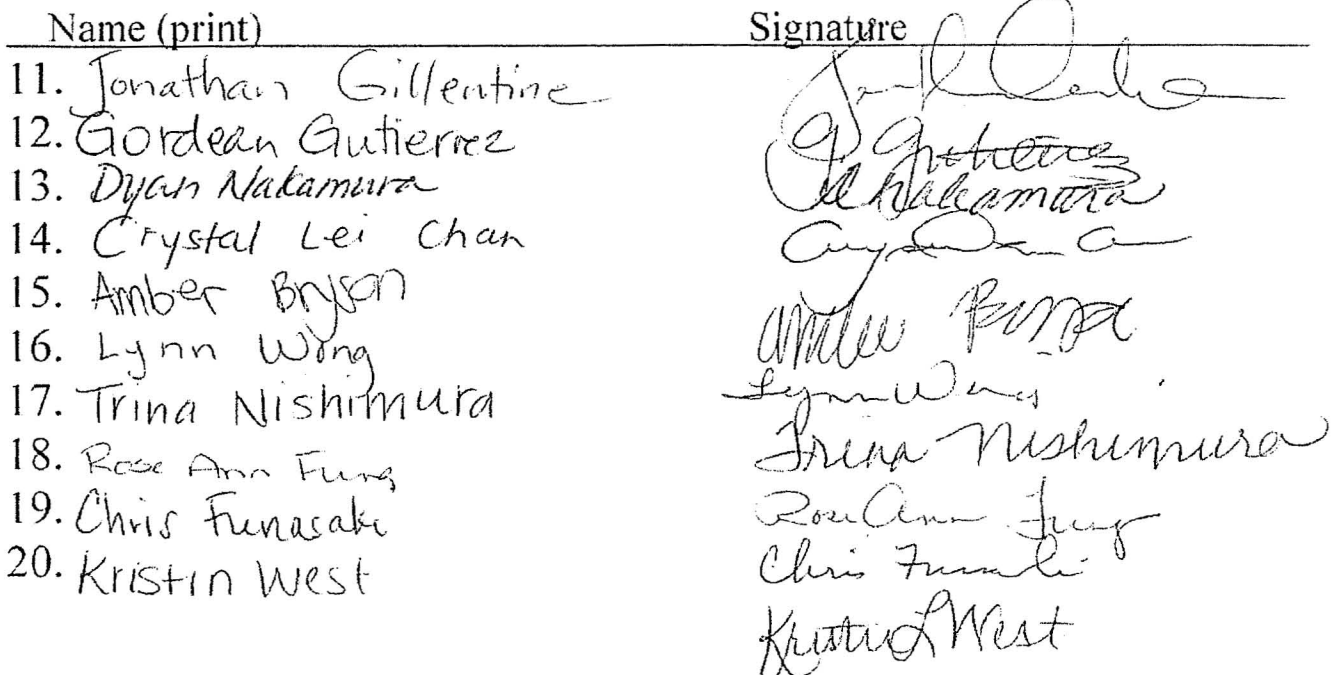 Name (print) Signature
11. Jonathan Gillentine
12. Gordean Gutierrez G Gutierrez
13. Dyan Nakamura d Nakamura
14. Crystal Lei Chan
15. Amber Bryson Amber
16. Lynn Wong Lynn Wong
17. Trina Nishimura Trina Nishimura
18. Rose Ann Fung Rose Ann Fung
19. Chris Funasaki Chris Funasaki
20. Kristin West Kristin L West